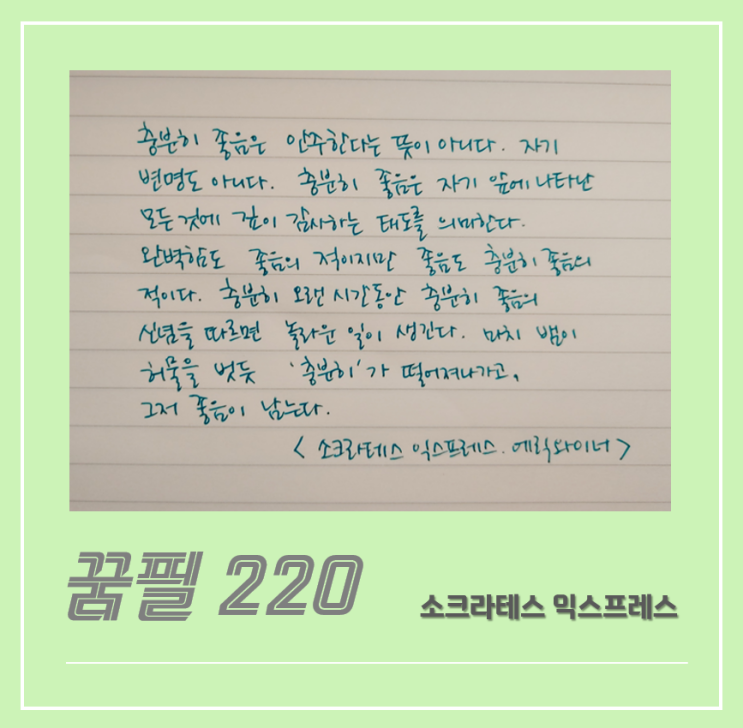 충분히 좋음은 안주한다는 뜻이 아니다. 자기
변명도 아니다. 충분히 좋음은 자기 앞에 나타난
모든 것에 깊이 감사하는 태도를 의미한다.
완벽함도 좋음의 적이지만 좋음도 충분히 좋음의
적이다. 충분히 오랜 시간동안 충분히 좋음의
신념을 따르면 놀라운 일이 생긴다. 마치 뱀이
허물을 벗듯 '충분히'가 떨어져나가고,
그저 좋음이 남는다.
< 소크라테스 익스프레스. 에릭와이너 >
꿈필 220
소크라테스 익스프레스